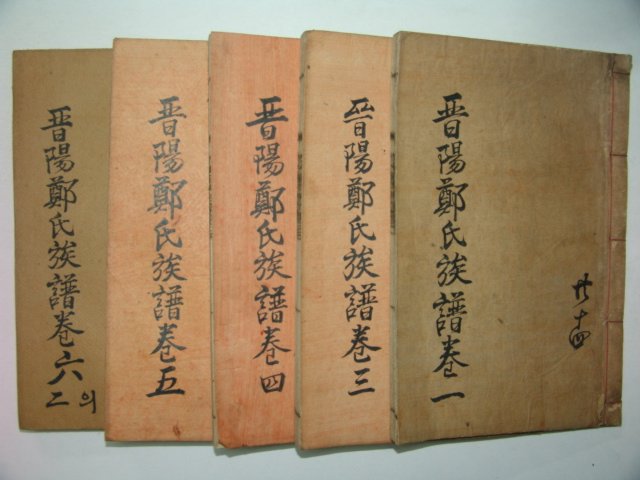 晋陽鄭氏族譜卷一
卄十四
晋陽鄭氏族譜卷三
晋陽鄭氏族譜卷四
晋陽鄭氏族譜卷五
晋陽鄭氏族譜卷六
의
二